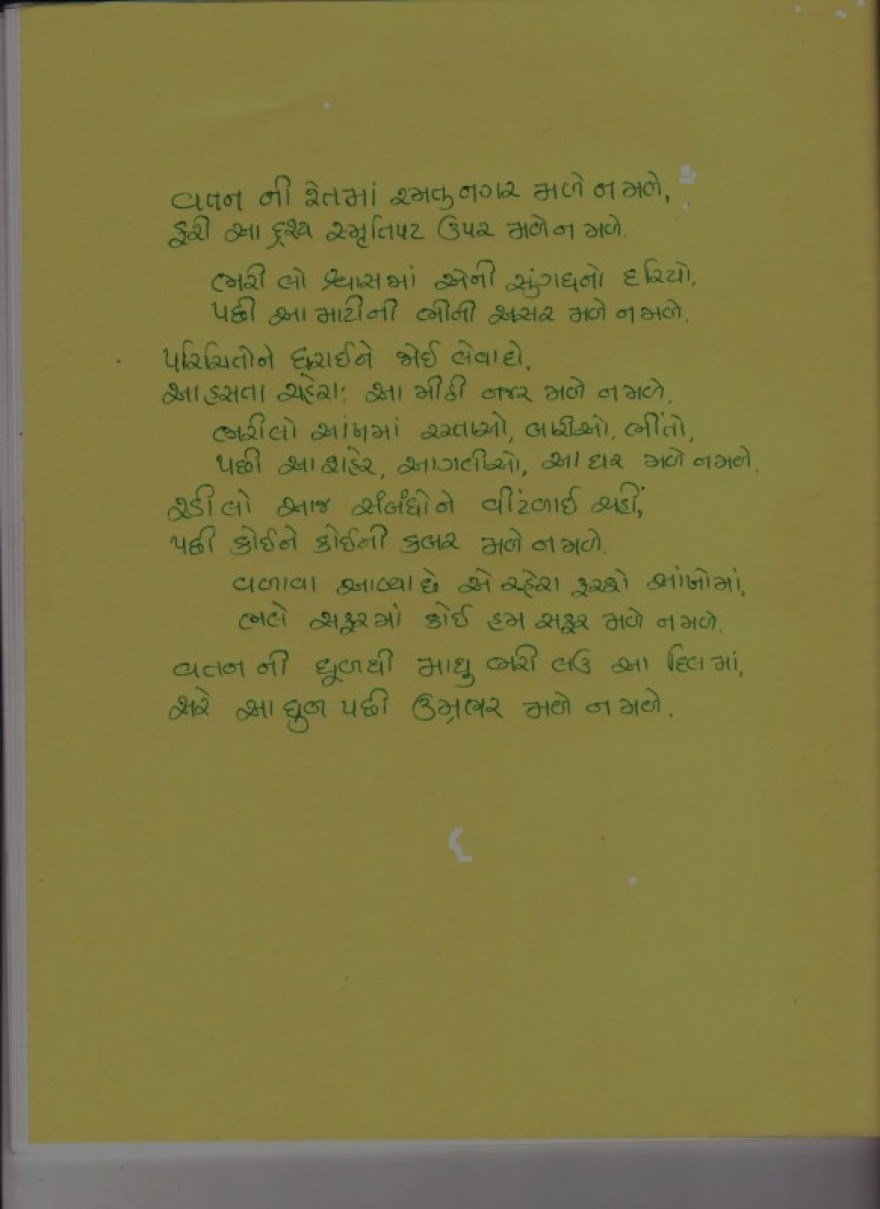 વતન ની રેતમાં રમતુ નગર મળે ન મળે,
ફરી આ દ્રશ્ય સ્મૃતિપટ ઉપર મળે ન મળે.
ભરી લો શ્વાસમાં એની સુંગધનો દરિયો,
પછી આ માટીની ભીની અસર મળે ન મળે.
પરિચિતોને ધરાઈને જોઈ લેવા દો,
આ હસતા ચહેરા: આ મીઠી નજર મળે ન મળે.
ભરી લો આંખમાં રસ્તાઓ, બારીઓ, ભીંતો,
પછી આ શહેર, આ ગલીઓ, આ ઘર મળે ન મળે.
રડી લો આજ સંબંધોને વીંટળાઈ અહીં,
પછી કોઈને કોઈની કબર મળે ન મળે.
વળાવા આવ્યા છે એ ચ્હેરા ફરશે આંખોમાં,
ભલે સફરમાં કોઈ હમ સફર મળે ન મળે.
વતન ની ધૂળથી માથુ ભરી લઉ આ દિલ માં,
અરે આ ધુળ પછી ઉમ્રભર મળે ન મળે.